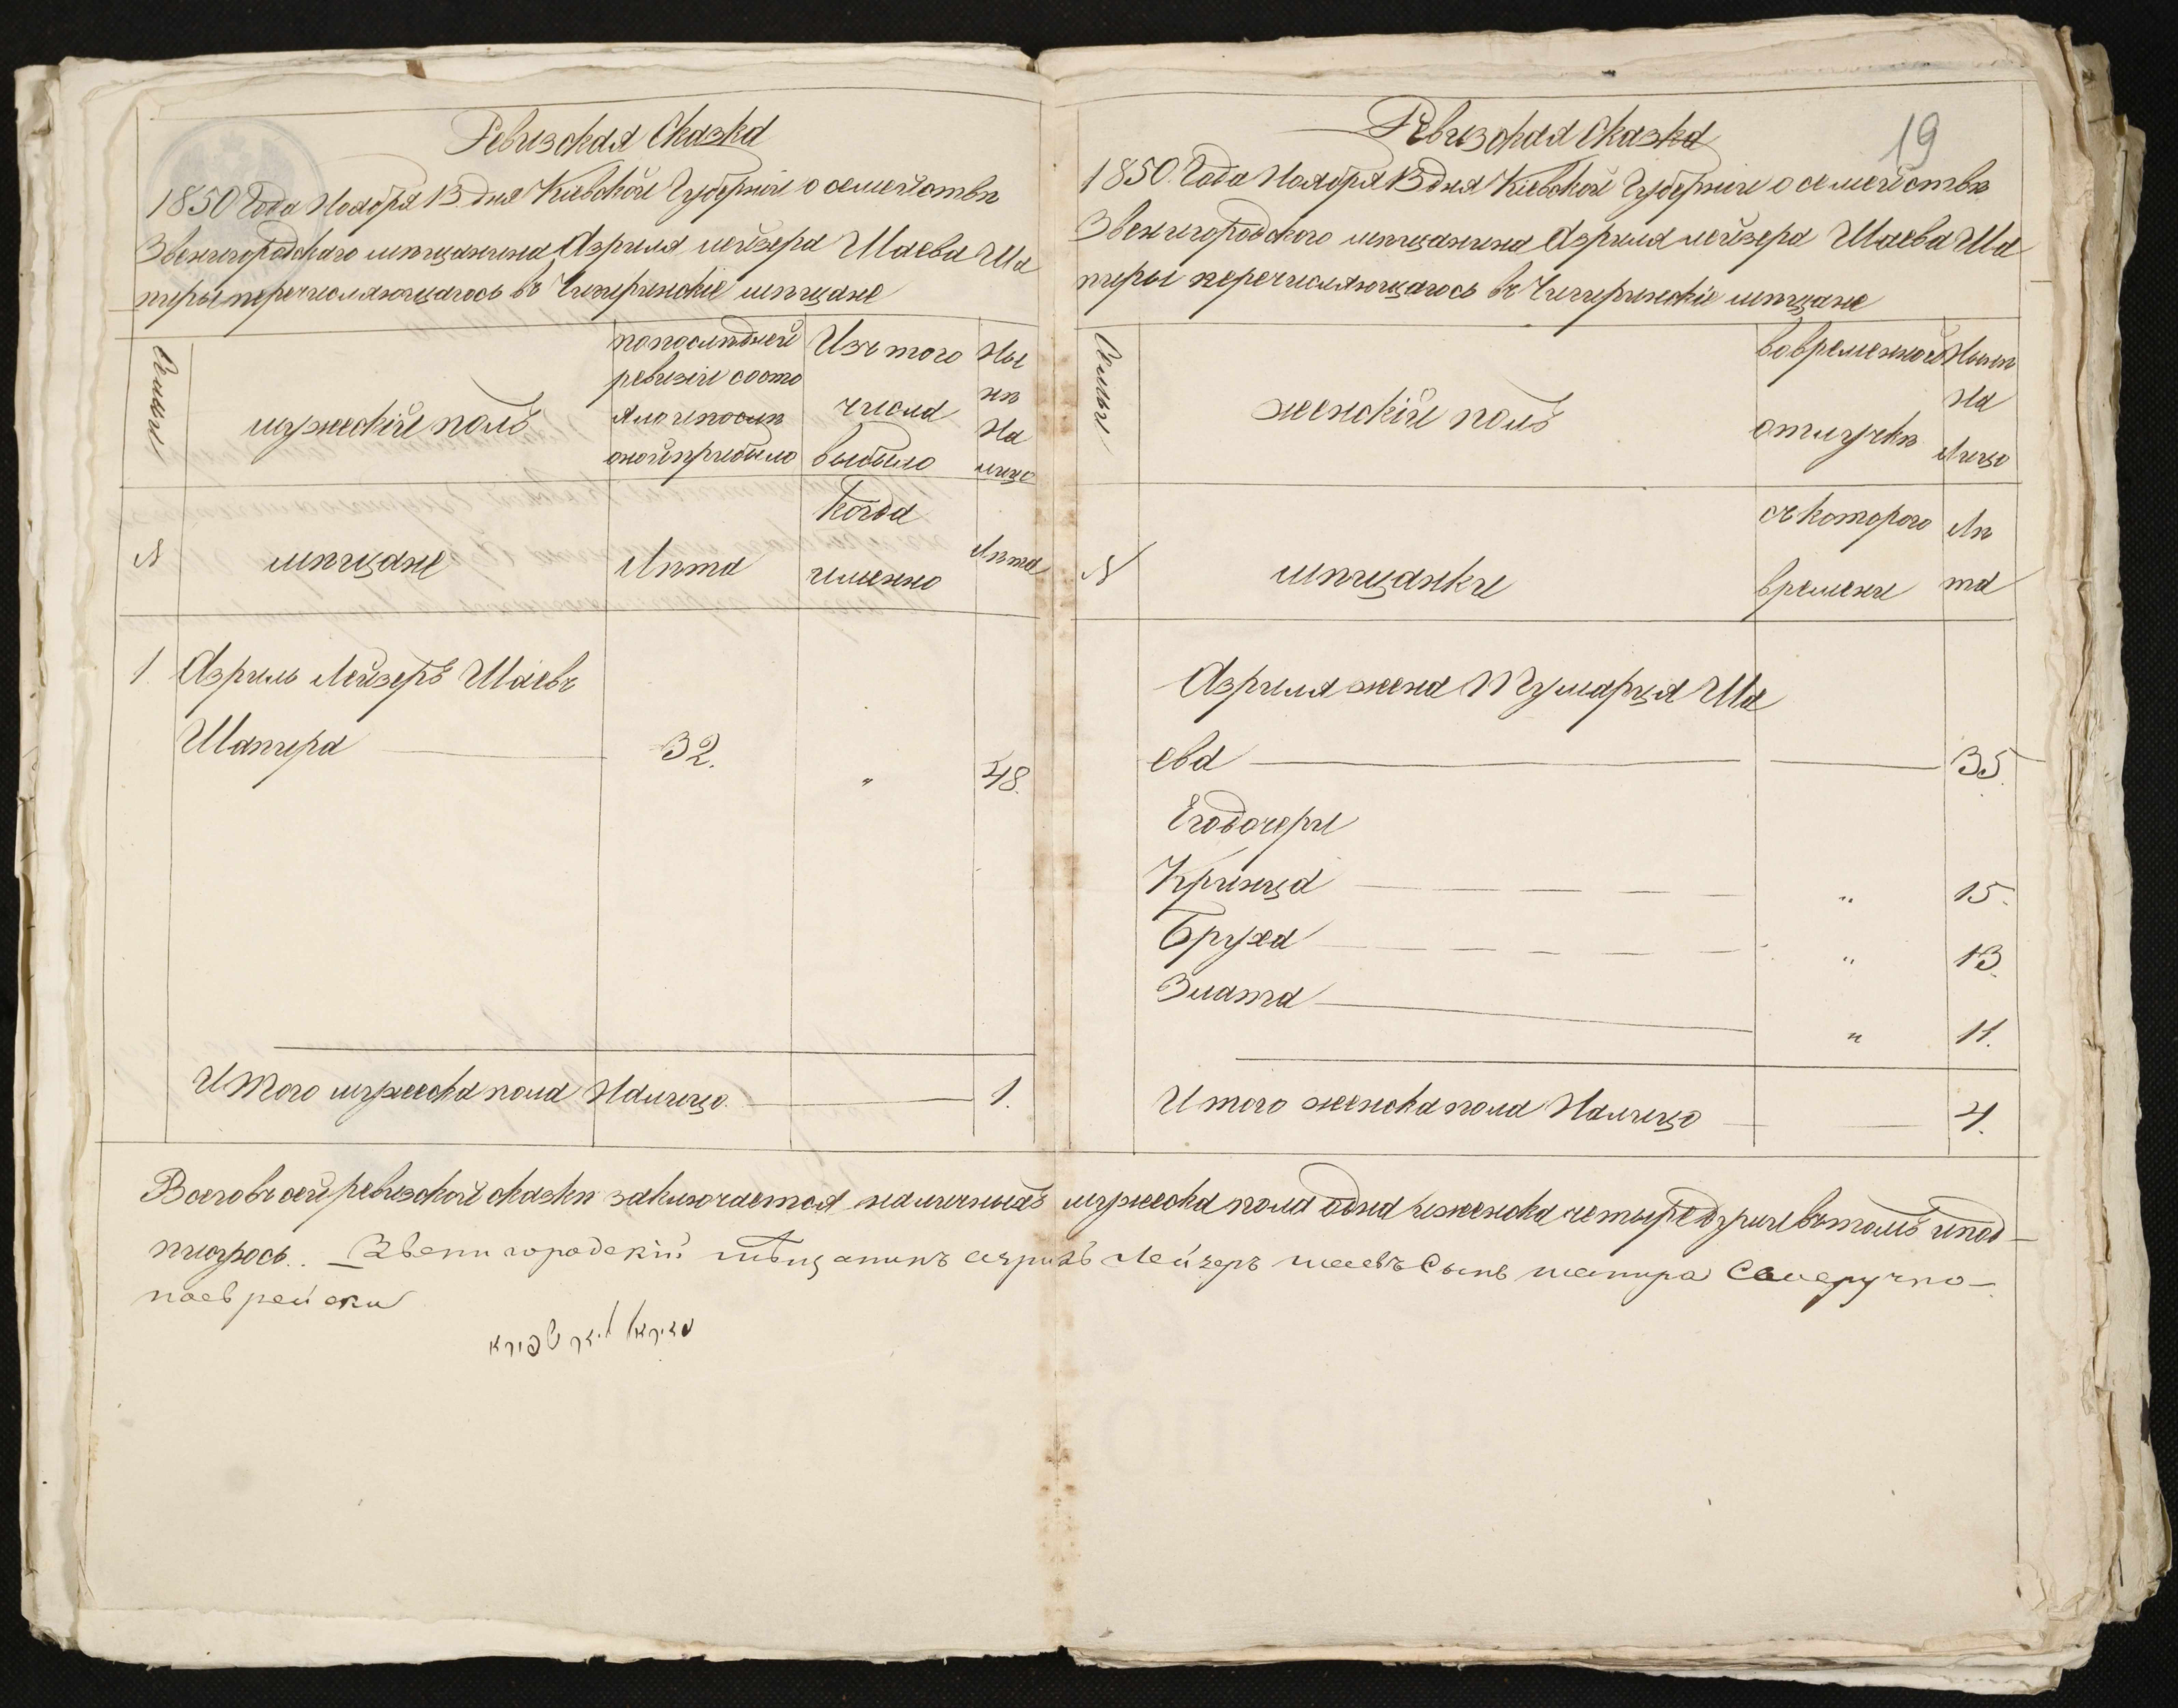 Ревизская Сказка
1850 Года Ноября 13 дня Кіевской Губерніи о семействѣ
Звенигородскаго мѣщанина Азриля лейзера Шаева Ша
пиры перечисляющагось въ Чигиринскіе мѣщане
Семьи
мужескій полъ
по последней
ревизіи состо
яло и послѣ
оной прибыло
Изъ того
числа
выбыло
Ны
нѣ
На
лицо
N
мѣщане
Лѣта
Когда
именно
Лѣта
1. Азриль Лейзеръ Шаевъ
Шапира 32. " 48.
Итого мужеска пола Налицо 1.
19
Ревизская Сказка
1850. Года Ноября 13 дня Кіевской Губерніи о семействѣ
Звенигородскаго мѣщанина Азриля лейзера Шаева Ша
пиры перечисляющагось въ Чигиринскіе мѣщане
Семьи
женскій полъ
во временной
отлучкѣ
Нынѣ
На
Лицо
N
мѣщанки
съ котораго
времени
Лѣ
та
Азриля жена Тумарця Ша
ева 35.
Его дочери
Кринца " 15.
Бруха " 13.
Злата " 11.
Итого женска пола Налицо 4.
Всего въ сей ревизской сказкѣ заключается наличныхъ мужеска пола одна и женска четыре души въ томъ и под-
пишусь. Звенигородскій мѣщанинъ азриль Лейзеръ шаевъ Сынъ шапира Самеручно-
поеврейски
עזריאל ליזר שפירא